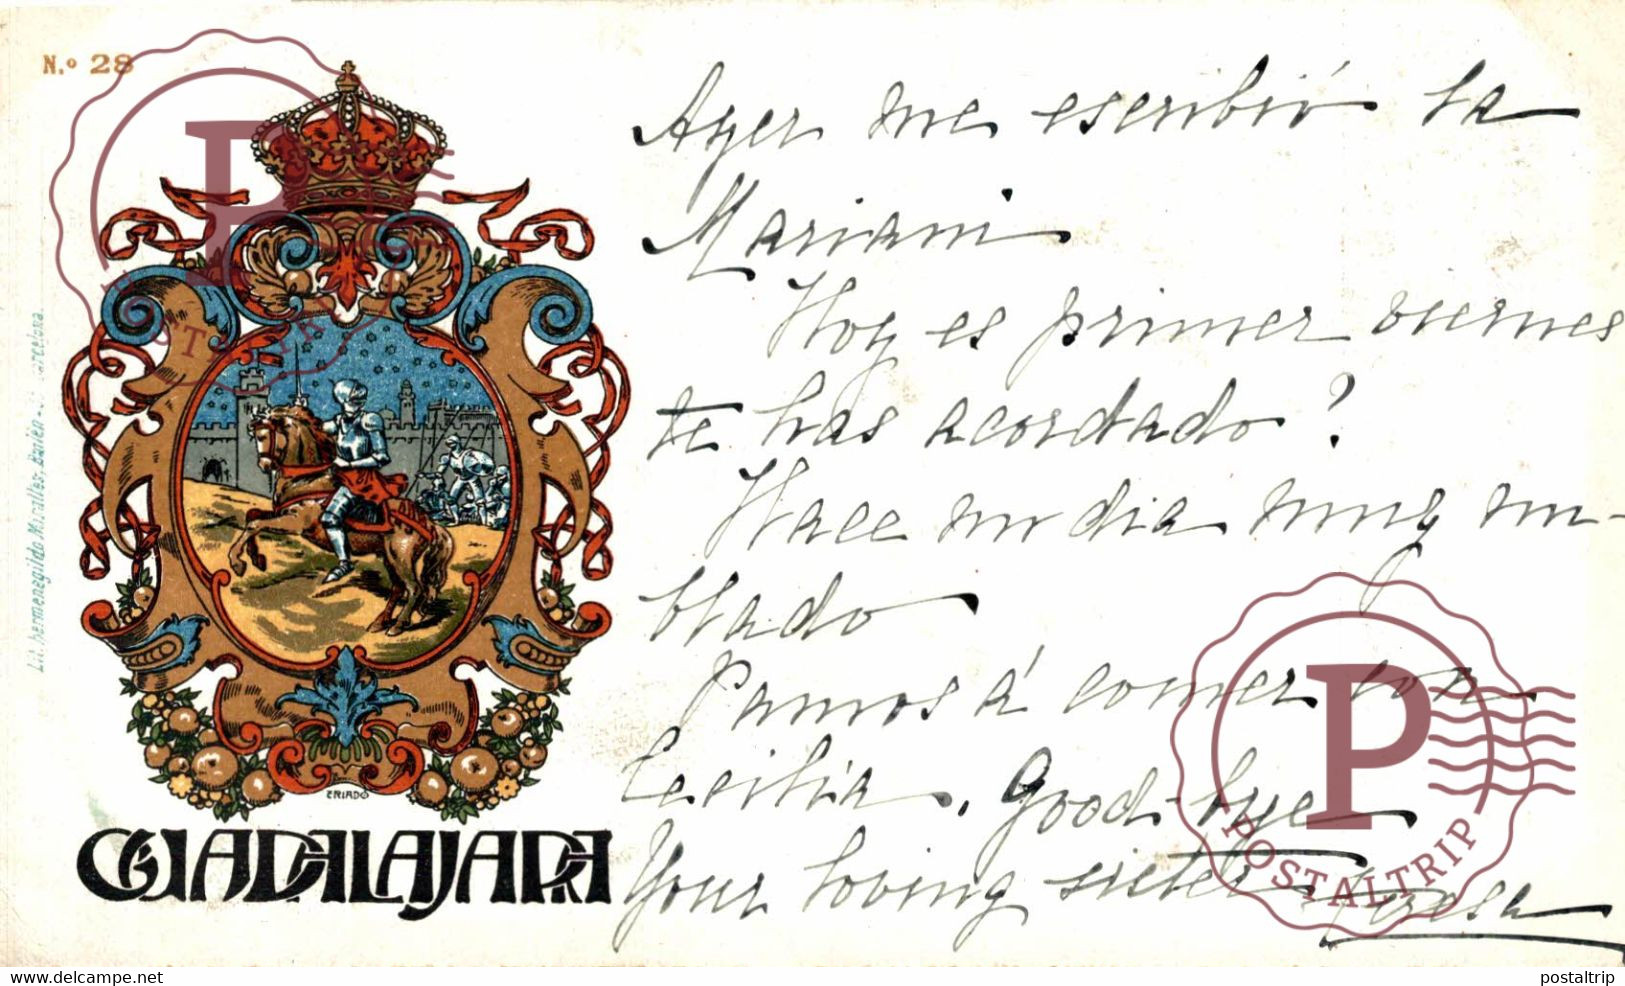 N.º 28
Ayer me escribió la
Mariani
Hoy es primer viernes
te has acordado?
Hace un dia muy nu-
blado
Vamos á comer con
Cecilia. Good-bye
Your loving sister Teresa
Lit. hermenegildo Miralles. Bailén Barcelona.
CRIADO
GUADALAJARA
P
POSTALTRIP
P
POSTALTRIP
www.delcampe.net
postaltrip